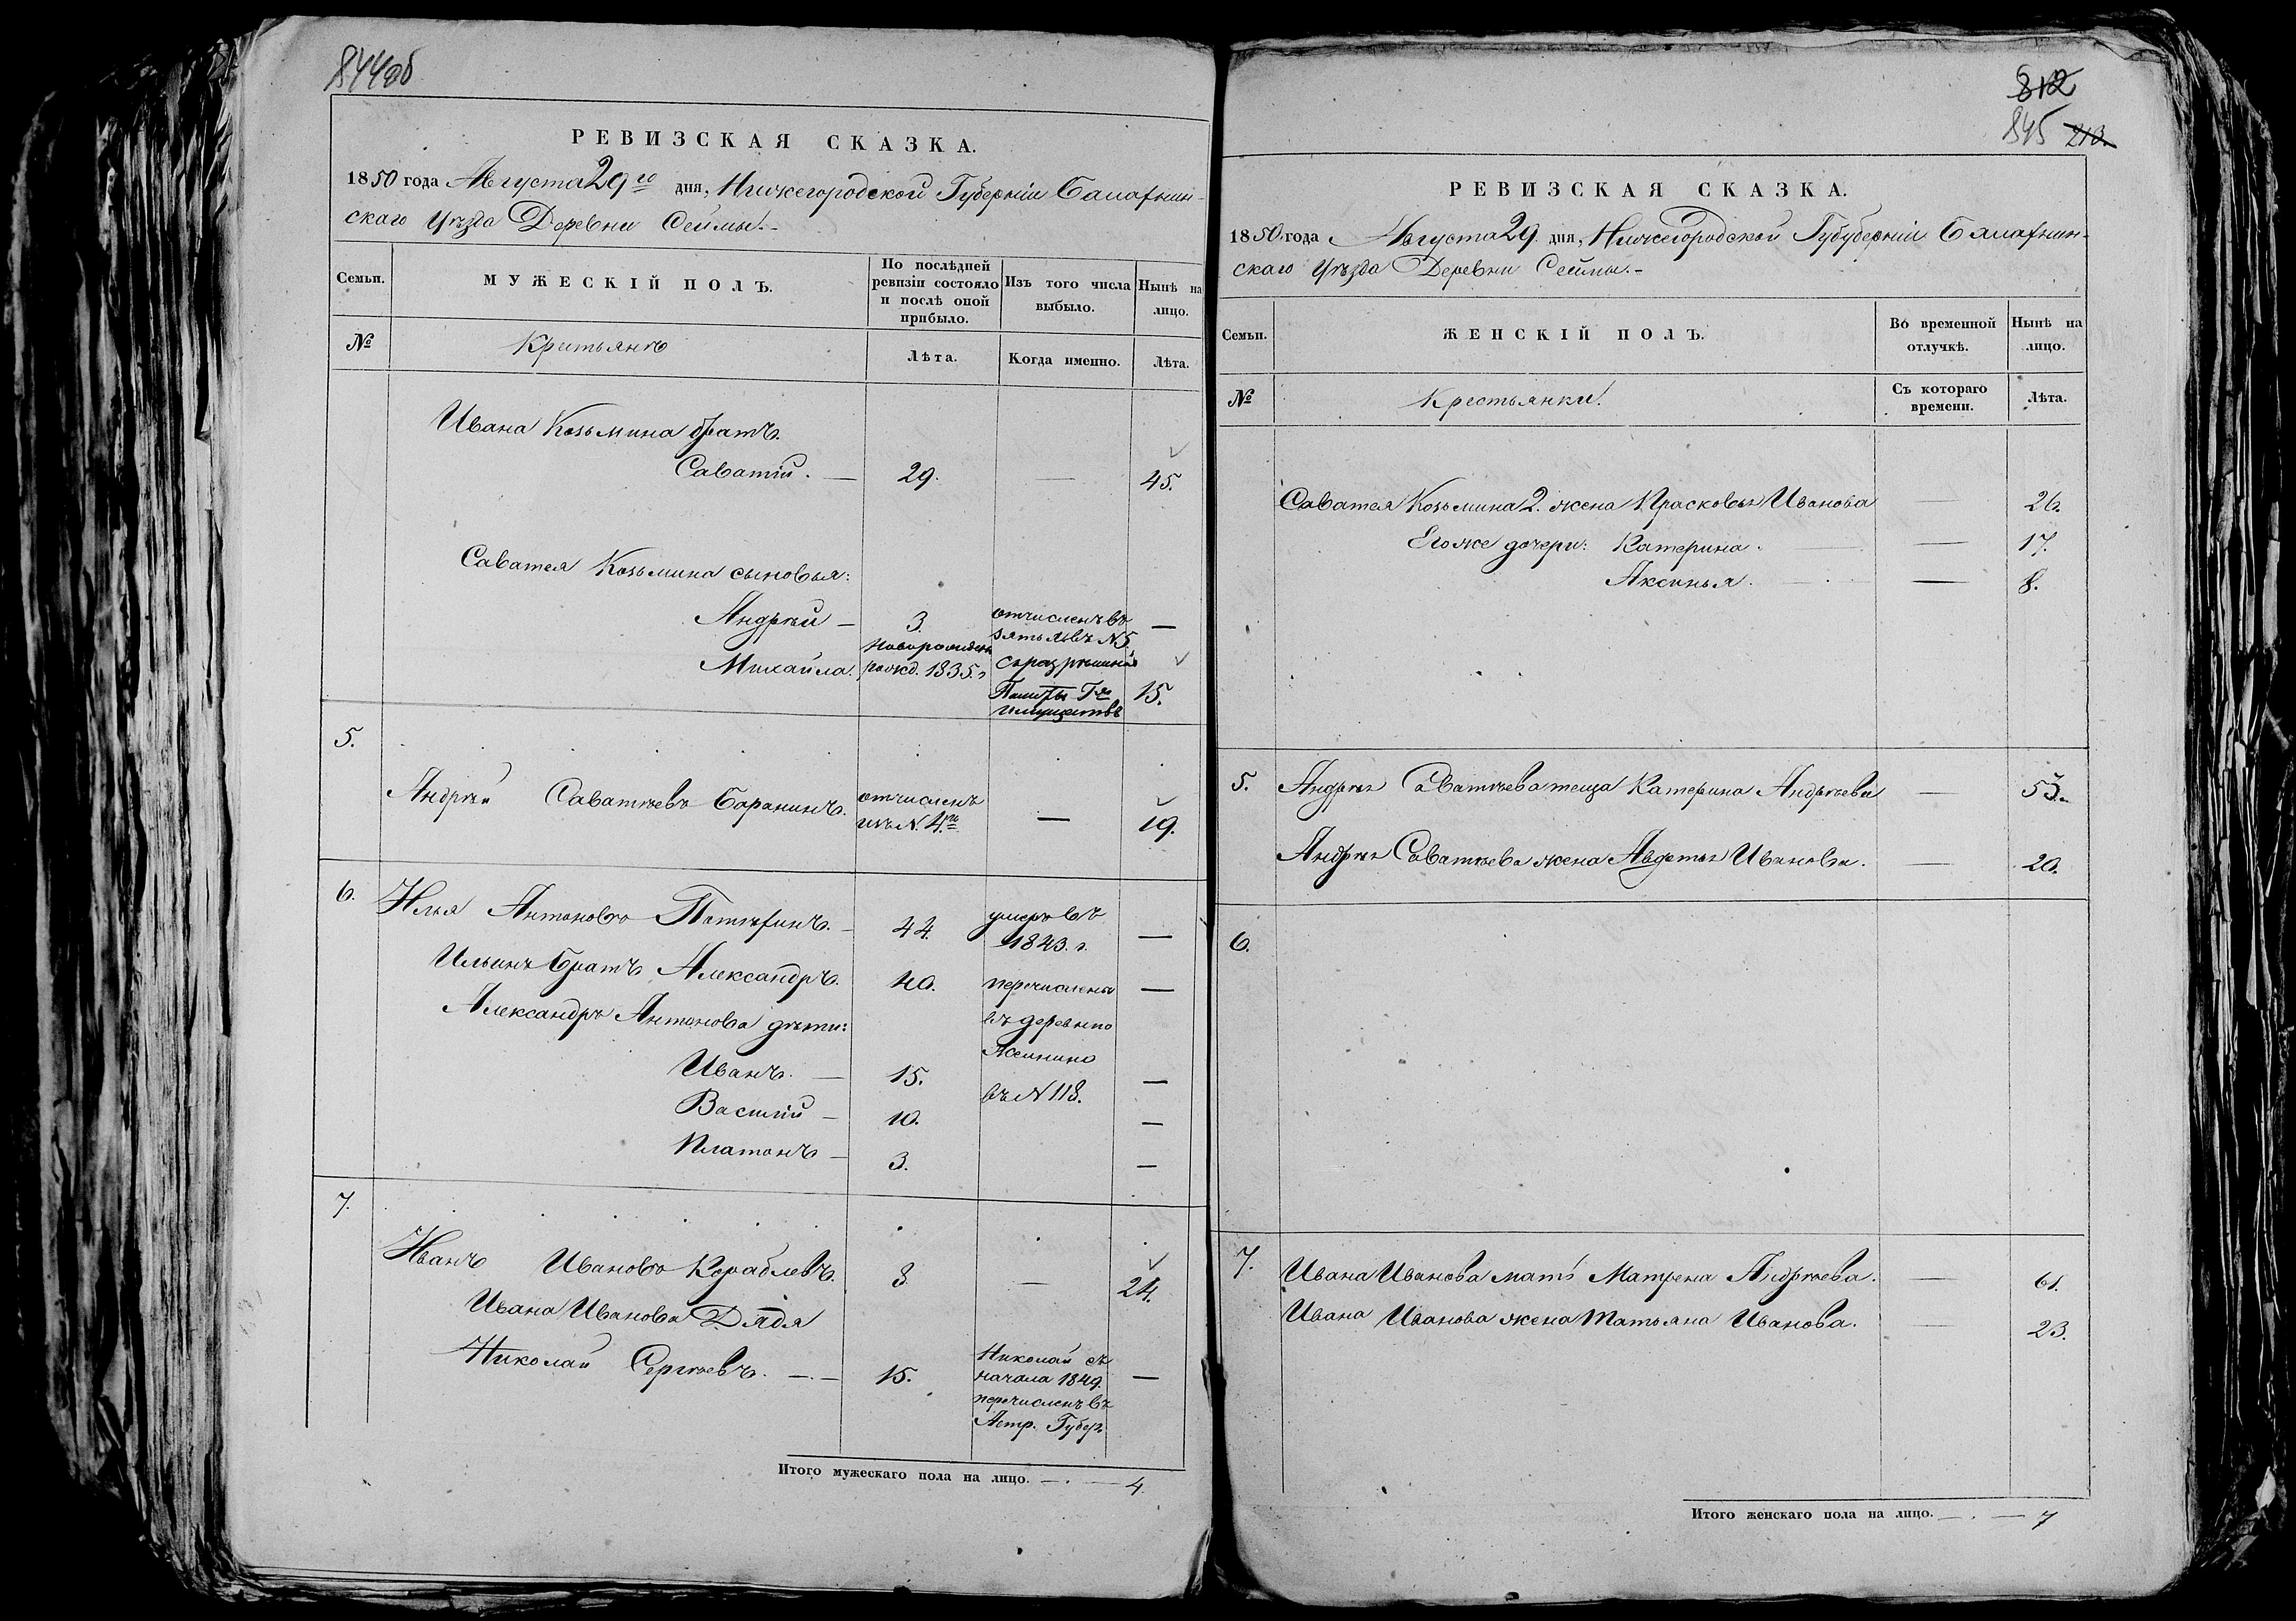 844об
РЕВИЗСКАЯ СКАЗКА.
1850 года Августа 29го дня, Нижегородской Губерніи Балахнин-
скаго Уѣзда Деревни Сеймы.
Семьи. МУЖЕСКІЙ ПОЛЪ. По послѣдней ревизіи состояло и послѣ оной прибыло. Изъ того числа выбыло. Нынѣ на лицо.
№ Крестьянъ Лѣта. Когда именно. Лѣта.
Ивана Козьмина братъ
Саватій. — 29. — 45.
Саватея Козьмина сыновья:
Андрей — 3. отчисленъ въ —
зятья въ N 5
новорожден
Михайла. рожд. 1835. г съ разрѣшенія 15.
Палаты Гх
имуществъ
5.
Андрей Саватѣевъ Баранинъ. отчисленъ
изъ N. 4го — 19.
6. Илья Антоновъ Потѣхинъ. — 44. умеръ въ —
1843. г.
Ильинъ братъ Александръ. 40. перечислены —
Александръ Антонова дѣти: въ деревню
Иванъ. — 15. въ N 118. —
Василій — 10. —
Платонъ — 3. —
7.
Иванъ Ивановъ Кораблевъ. 8. — 24.
Ивана Иванова Дядя
Николай Сергѣевъ. — — 15. Николай съ —
начала 1849.
перечисленъ въ
Астр. Губер.
Итого мужескаго пола на лицо. — 4.
812
845 213.
РЕВИЗСКАЯ СКАЗКА.
1850 года Августа 29 дня, Нижегородской Губуберніи Балахнин-
скаго Уѣзда Деревни Сеймы. -
Семьи. ЖЕНСКІЙ ПОЛЪ. Во временной отлучкѣ. Нынѣ на лицо.
№ Крестьянки. Съ котораго времени. Лѣта.
Саватея Козьмина 2. жена Прасковья Иванова — 26.
Его же дочери: Катерина. — 17.
Аксинья. — 8.
5. Андрея Саватѣева теща Катерина Андрѣева — 53.
Андрея Саватѣева жена Авдотья Иванова. — 20.
6.
7. Ивана Иванова мать Матрена Андрѣева. — 61.
Ивана Иванова жена Татьяна Иванова. — 23.
Итого женскаго пола на лицо. — 7